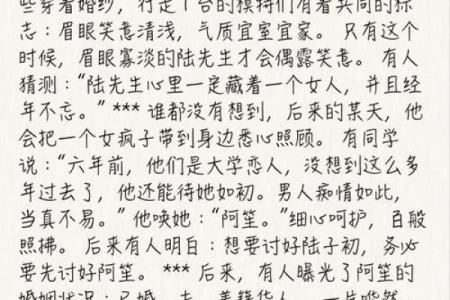 些穿着婚纱，行走T台的模特们有着共同的标
志：眉眼笑意清浅，气质宜室宜家。 只有这个
时候，眉眼寡淡的陆先生才会偶露笑意。 有人
猜测：“陆先生心里一定藏着一个女人，并且经
年不忘。” *** 谁都没有想到，后来的某天，他
会把一个女疯子带到身边悉心照顾。 有同学
说：“六年前，他们是大学恋人，没想到这么多
年过去了，他还能待她如初。男人痴情如此，
当真不易。” 他唤她：“阿笙。”细心呵护，百般
照拂。 后来有人明白：想要讨好陆子初，务必
要先讨好阿笙。 *** 后来，有人曝光了阿笙的
婚姻状况：已婚，夫，美籍华人。 一片哗然